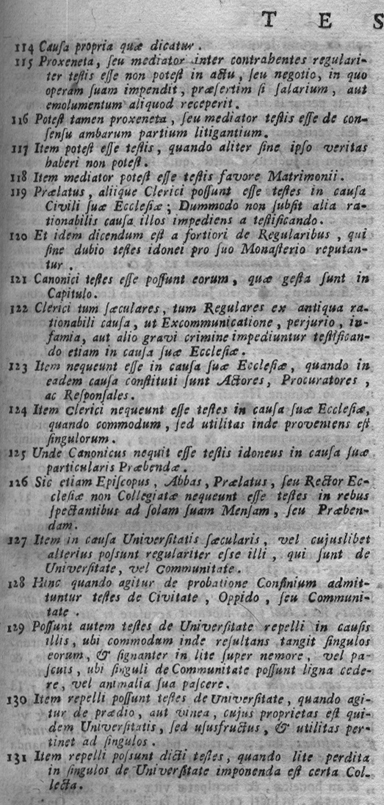 T E S
114 Causa propria quæ dicatur.
115 Proxeneta, seu mediator inter contrahentes regulari-
ter testis esse non potest in actu, seu negotio, in quo
operam suam impendit, præsertim si salarium, aut
emolumentum aliquod receperit.
116 Potest tamen proxeneta, seu mediator testis esse de con-
sensu ambarum partium litigantium.
117 Item potest esse testis, quando aliter sine ipso veritas
haberi non potest.
118 Item mediator potest esse testis favore Matrimonii.
119 Prælatus, aliique Clerici possunt esse testes in causa
Civili suæ Ecclesiæ; Dummodo non subsit alia ra-
tionabilis causa illos impediens a testificando.
120 Et idem dicendum est a fortiori de Regularibus, qui
sine dubio testes idonei pro suo Monasterio reputan-
tur.
121 Canonici testes esse possunt eorum, quæ gesta sunt in
Capitulo.
122 Clerici tum sæculares, tum Regulares ex antiqua ra-
tionabili causa, ut Excommunicatione, perjurio, in-
famia, aut alio gravi crimine impediuntur testifican-
do etiam in causa suæ Ecclesiæ.
123 Item nequeunt esse in causa suæ Ecclesiæ, quando in
eadem causa constituti sunt Actores, Procuratores,
ac Responsales.
124 Item Clerici nequeunt esse testes in causa suæ Ecclesiæ,
quando commodum, sed utilitas inde proveniens est
singulorum.
125 Unde Canonicus nequit esse testis idoneus in causa suæ
particularis Præbendæ.
126 Sic etiam Episcopus, Abbas, Prælatus, seu Rector Ec-
clesiæ non Collegiatæ nequeunt esse testes in rebus
spectantibus ad solam suam Mensam, seu Præben-
dam.
127 Item in causa Universitatis sæcularis, vel cujuslibet
alterius possunt regulariter esse illi, qui sunt de
Universitate, vel Communitate.
128 Hinc quando agitur de probatione Confinium admit-
tuntur testes de Civitate, Oppido, seu Communi-
tate.
129 Possunt autem testes de Universitate repelli in causis
illis, ubi commodum inde resultans tangit singulos
eorum, & signanter in lite super nemore, vel pa-
scuis, ubi singuli de Communitate possunt ligna cede-
re, vel animalia sua pascere.
130 Item repelli possunt testes de Universitate, quando agi-
tur de prædio, aut vinea, cujus proprietas est qui-
dem Universitatis, sed ususfructus, & utilitas per-
tinet ad singulos.
131 Item repelli possunt dicti testes, quando lite perdita
in singulos de Universitate imponenda est certa Col-
lecta.